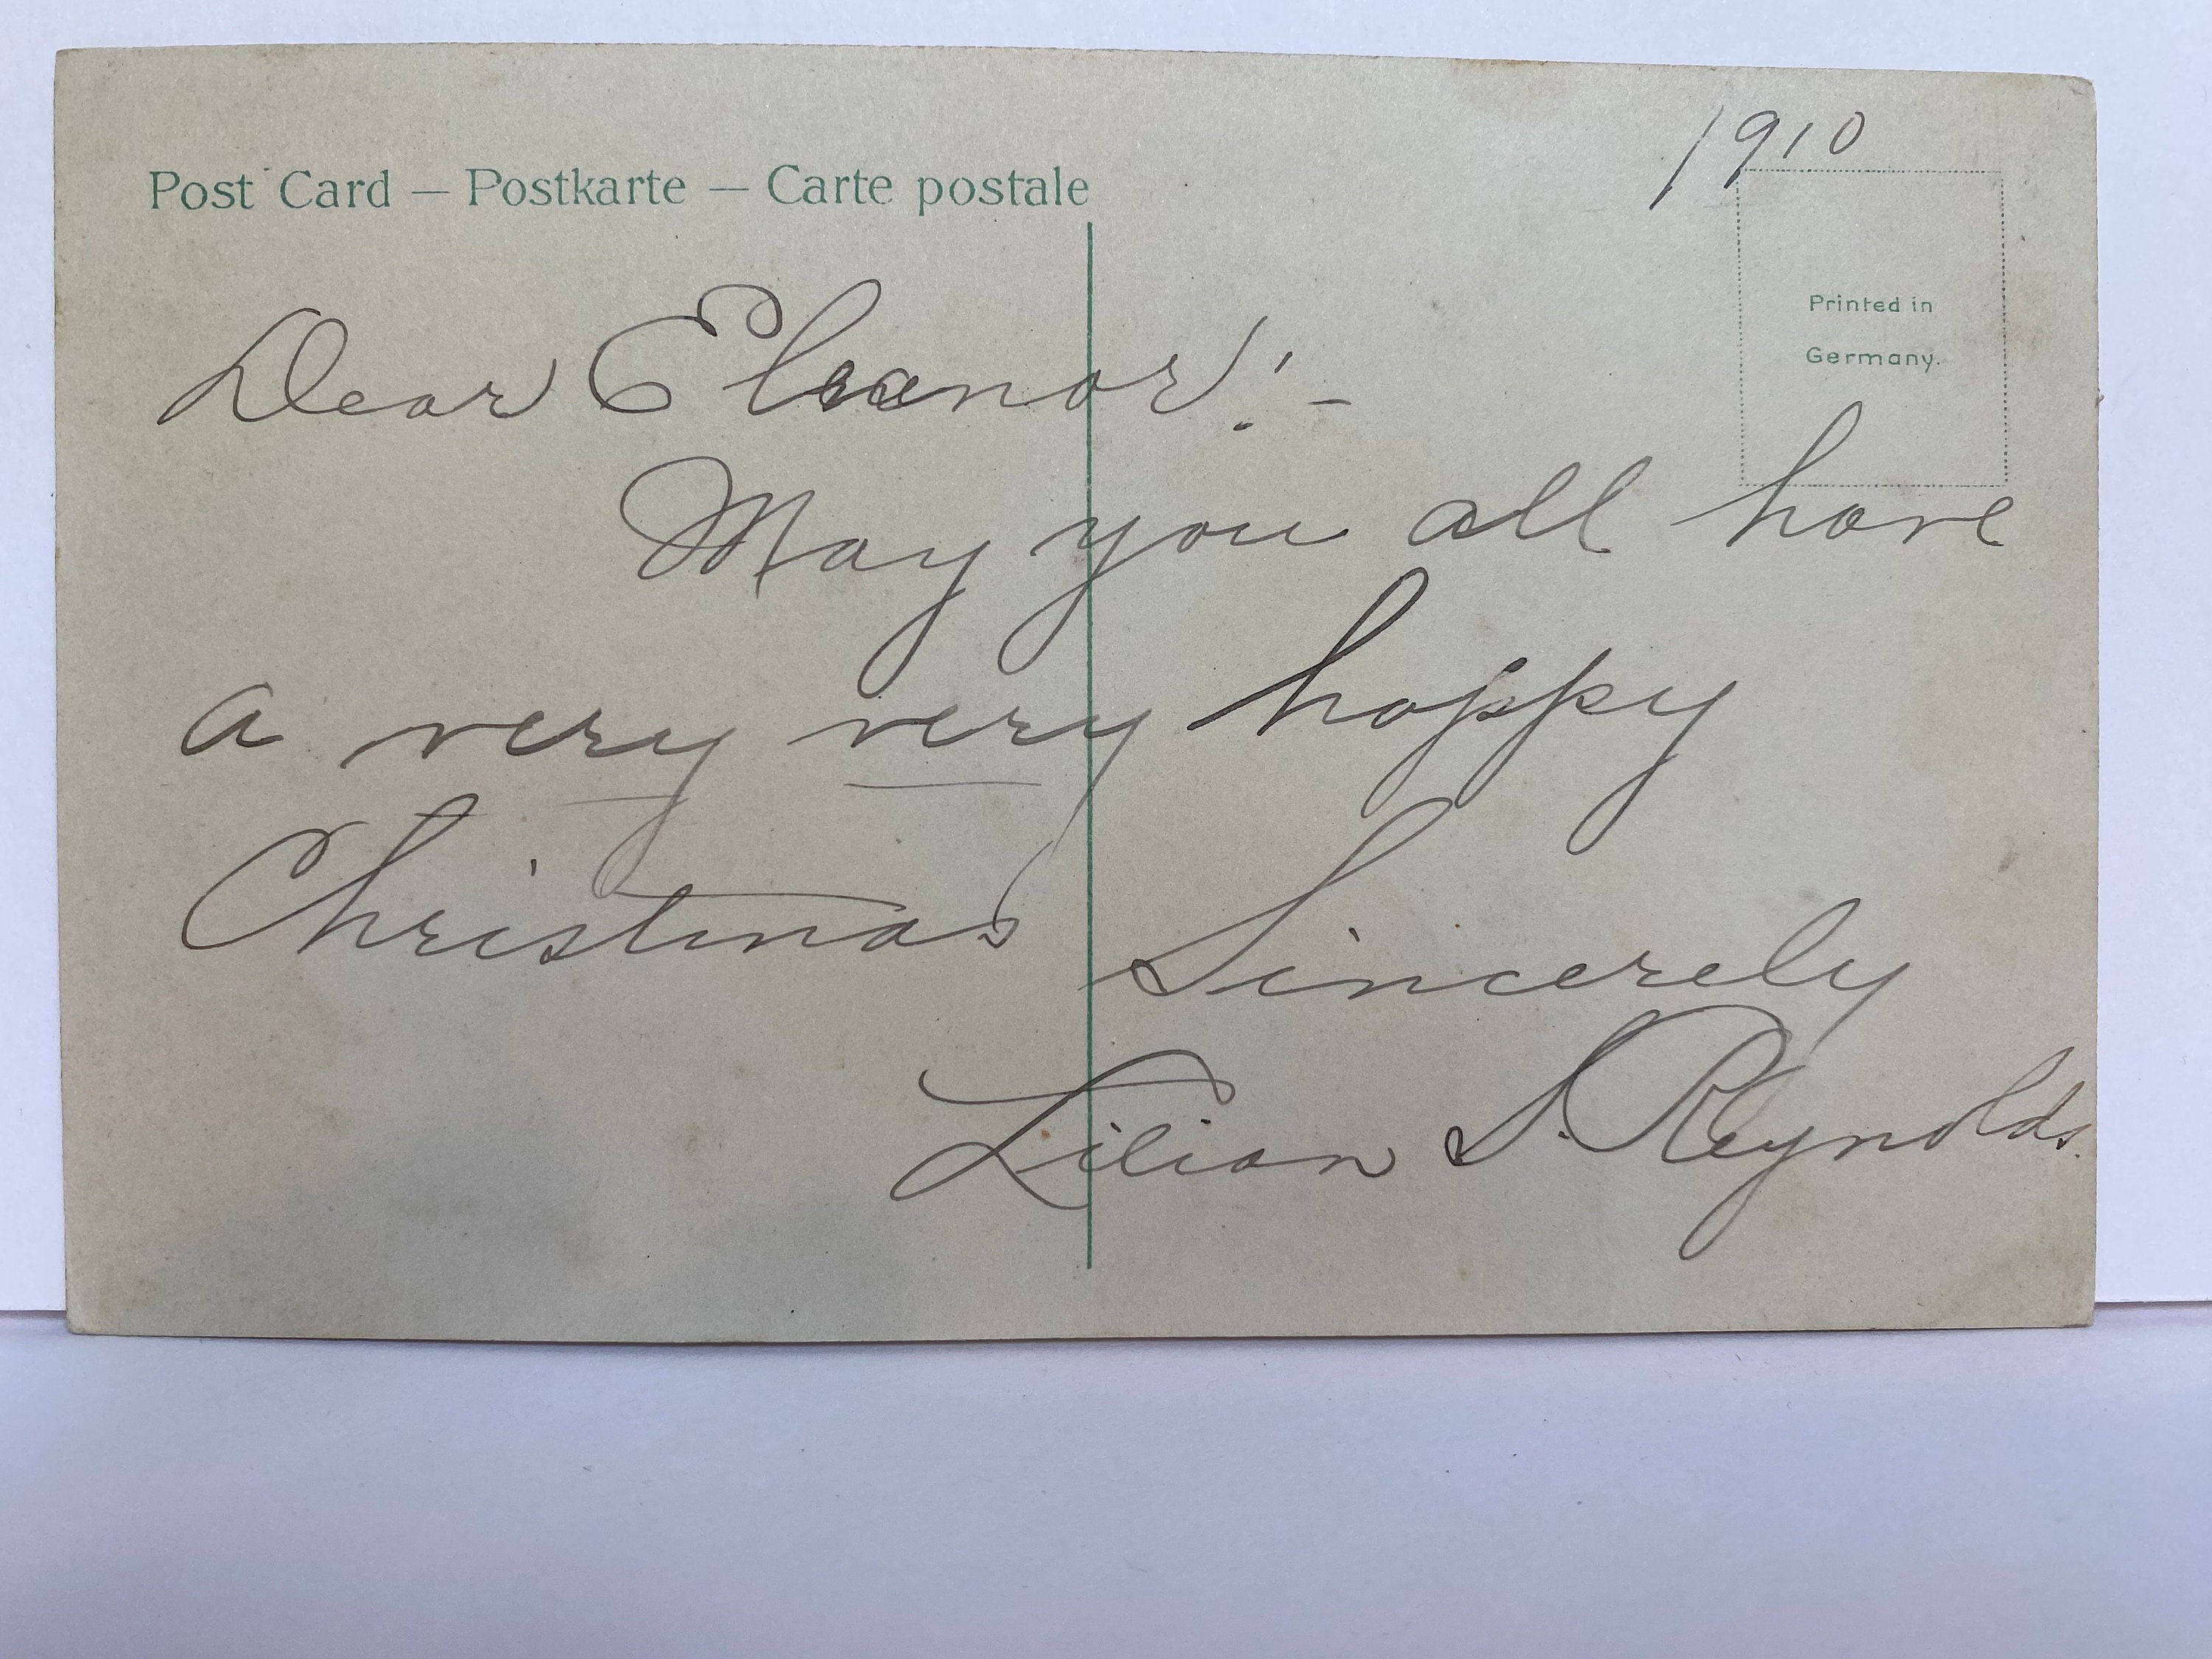 1910
Post Card — Postkarte — Carte postale
Printed in
Germany.
Dear Eleanor! -
May you all have
a very very happy
Christmas
Sincerely
Lilian S. Reynolds.